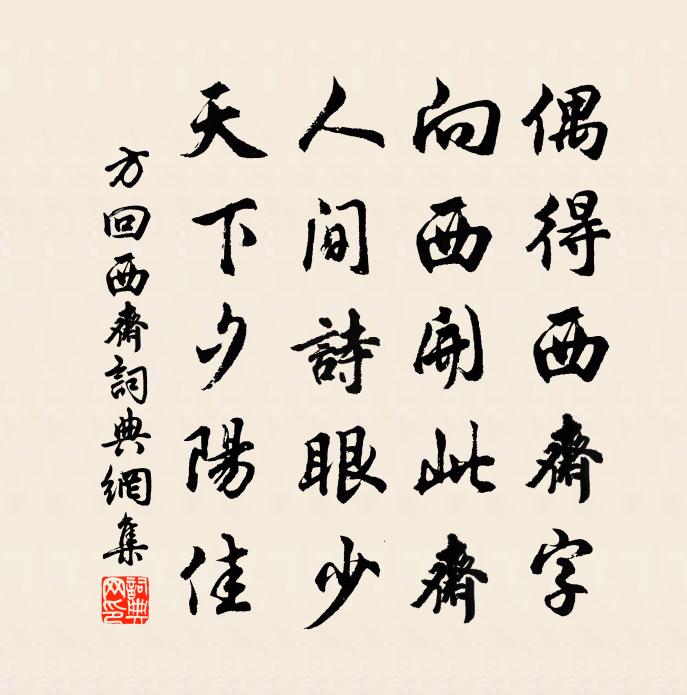 偶得西齋字
向西開此齋
人間詩眼少
天下夕陽佳
方回西齋詞典網集
詞典網印